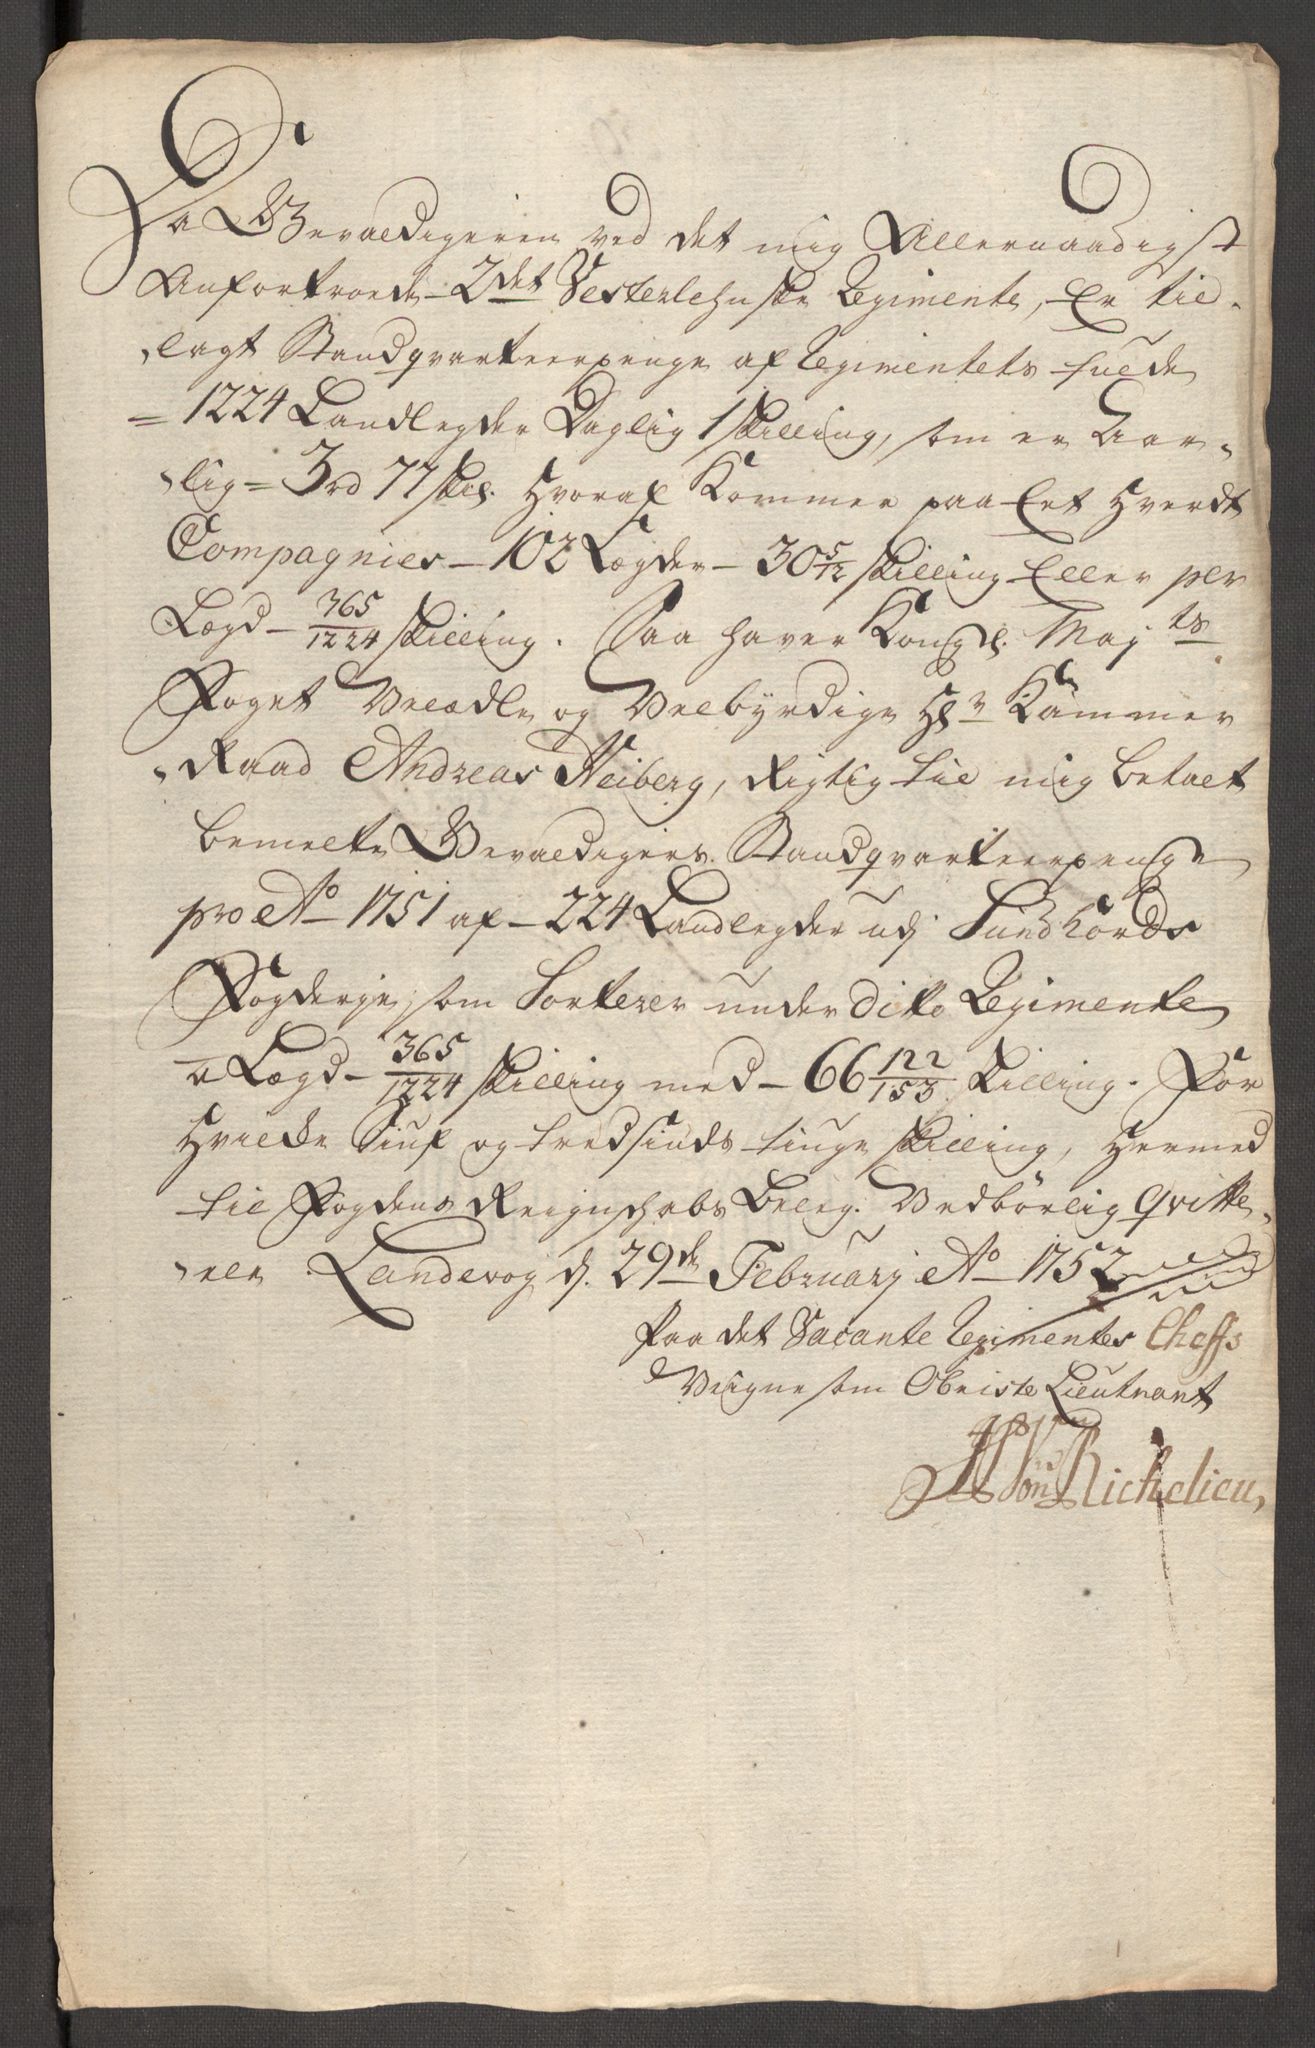 Da Gevaldigeren ved det mig Allernaadigst
Anfortroede 2det Vesterlehnske Regimente, Er til-
-lagt Standqvarteerpenge af Regimentets fulde
= 1224 Landlegder Daglig 1 skilling, som er Aar-
-lig = 3 rd 77 skil. Hvoraf Kommer paa Eet Hverdt
Compagnies - 102 Lægder - 30 5/12 skilling Eller per
Lægd - 365/1224 skilling. Saa haver Kongl. Maj:ts
Foget Velædle og Velbyrdige Hr Kammer
-Raad Andreas Heiberg, Rigtig til mig betalt
bemelte Gevaldigers Standqvarteerpenge
pro Ao 1751 af - 224 Landlegder udj Sundhords
Fogderje, som Sorterer under Ditto Regimente
a Lægd - 365/1224 skilling med - 66 122/153 skilling. For
Hvilcke Siuf og tredsinds tiuge skilling, Hermed
til Fogdens Reignschabs Beleg. Vedbörlig Qvitte-
-rer Landevog d. 29de Februarj Ao 1752
Paa det Vacante Regimentes Cheffs
Veigne som Obriste Lieutnant
Von Richelieu,